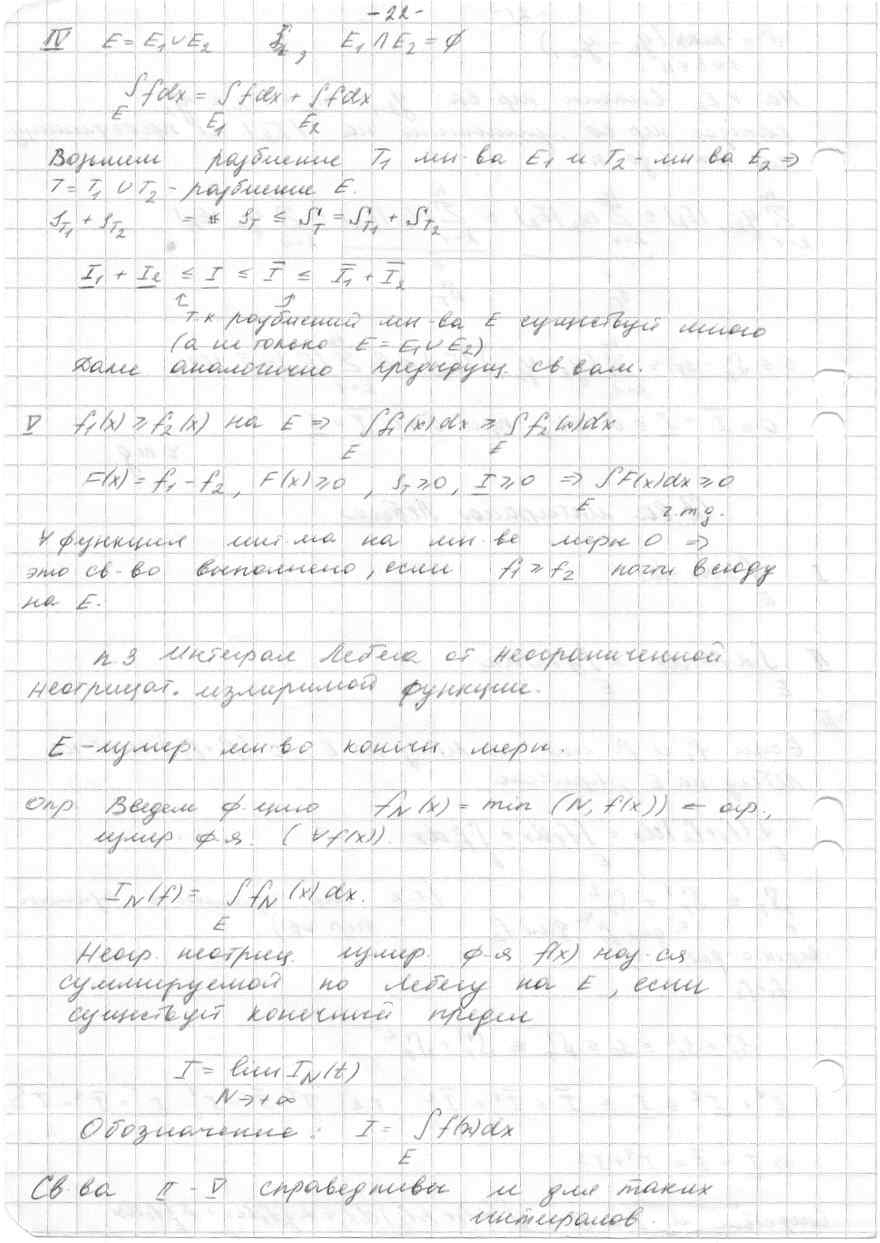 -22-
IV E = E₁ ∪ E₂ , E₁ ∩ E₂ = ∅
∫fdx = ∫fdx + ∫fdx
E E₁ E₂
Возьмем разбиение T₁ мн-ва E₁ и T₂ - мн-ва E₂ ⇒
T = T₁ ∪ T₂ - разбиение E.
s_T₁ + s_T₂ = s_T ≤ S_T = S_T₁ + S_T₂
I̲₁ + I̲₂ ≤ I̲ ≤ I̅ ≤ I̅₁ + I̅₂
↑ ↑
т.к разбиений мн-ва E существует много
(а не только E = E₁ ∪ E₂)
Далее аналогично предыдущ. св-вам.
V f₁(x) ≥ f₂(x) на E ⇒ ∫f₁(x)dx ≥ ∫f₂(x)dx
E E
F(x) = f₁ - f₂, F(x) ≥ 0, s_T ≥ 0, I̲ ≥ 0 ⇒ ∫F(x)dx ≥ 0
E ч.т.д.
∀ функция инт-ма на мн-ве меры 0 ⇒
это св-во выполнено, если f₁ ≥ f₂ почти всюду
на E.
п.3 Интеграл Лебега от неограниченной
неотрицат. измеримой функции.
E - измер. мн-во конечн. меры.
Опр Введем ф-цию f_N(x) = min (N, f(x)) ← огр.,
измер. ф-я. (∀f(x)).
I_N(f) = ∫f_N(x)dx.
E
Неогр. неотриц. измер. ф-я f(x) наз-ся
суммируемой по Лебегу на E, если
существует конечный предел
I = lim I_N(t)
N→+∞
Обозначение: I = ∫f(x)dx
E
Св-ва II - V справедливы и для таких
интегралов.